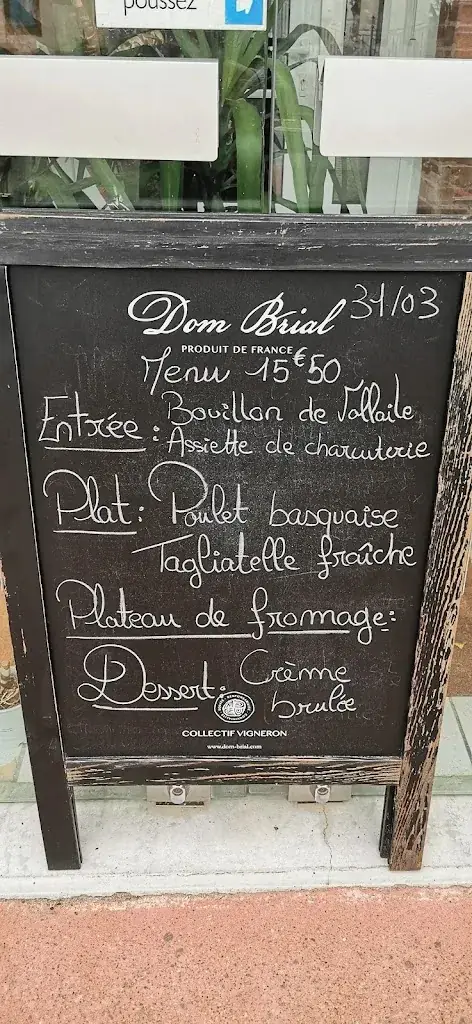 poussez
31/03
Dom Brial
PRODUIT DE FRANCE
Menu 15€50
Entrée : Bouillon de Vollaile
Assiette de charcuterie
Plat : Poulet basquaise
Tagliatelle fraîche
Plateau de fromage :
Dessert : Crème
brulée
COLLECTIF VIGNERON
www.dom-brial.com